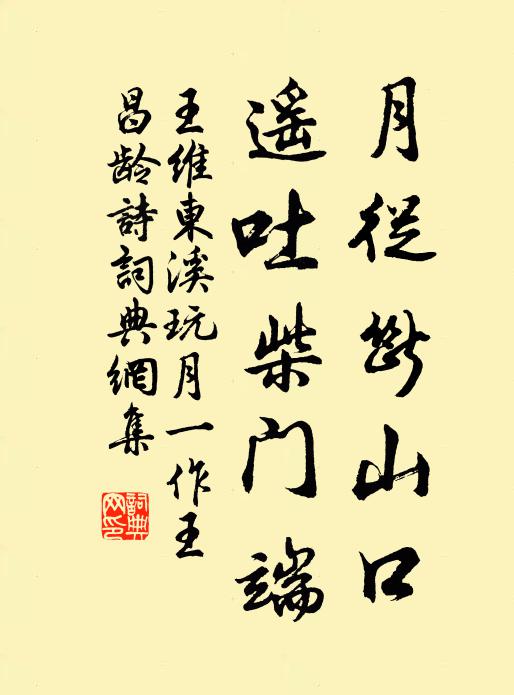 月從斷山口
遥吐柴門端
王維東溪玩月一作王
昌齡詩詞典網集
詞典
网印